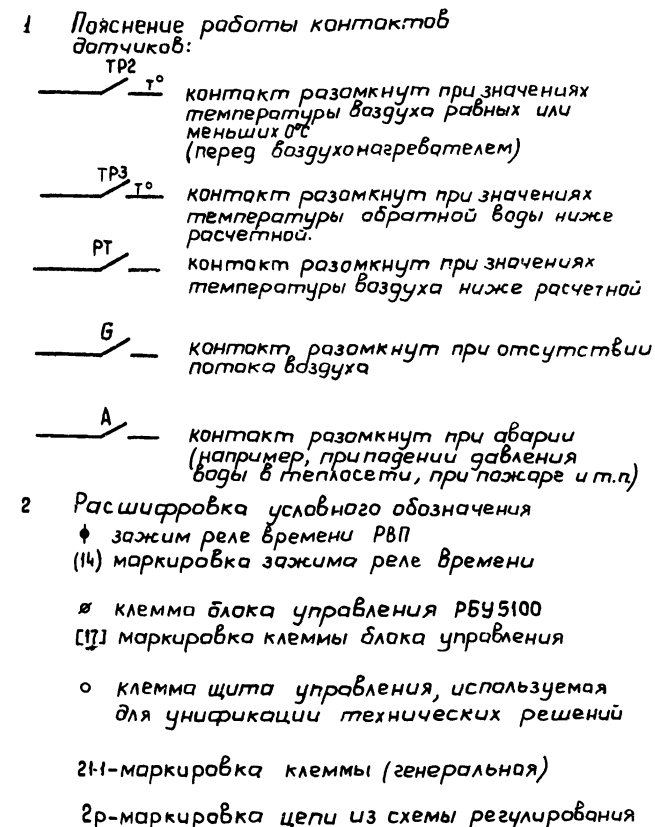 1 Пояснение работы контактов
датчиков:
ТР2
T°
контакт разомкнут при значениях
температуры воздуха равных или
меньших 0°С
(перед воздухонагревателем)
ТР3
T°
контакт разомкнут при значениях
температуры обратной воды ниже
расчетной.
РТ
контакт разомкнут при значениях
температуры воздуха ниже расчетной
G
контакт разомкнут при отсутствии
потока воздуха
А
контакт разомкнут при аварии
(например, при падении давления
воды в теплосети, при пожаре и т.п)
2 Расшифровка условного обозначения
зажим реле времени РВП
(14) маркировка зажима реле времени
клемма блока управления РБУ5100
[17] маркировка клеммы блока управления
клемма щита управления, используемая
для унификации технических решений
21-1-маркировка клеммы (генеральная)
2р-маркировка цепи из схемы регулирования